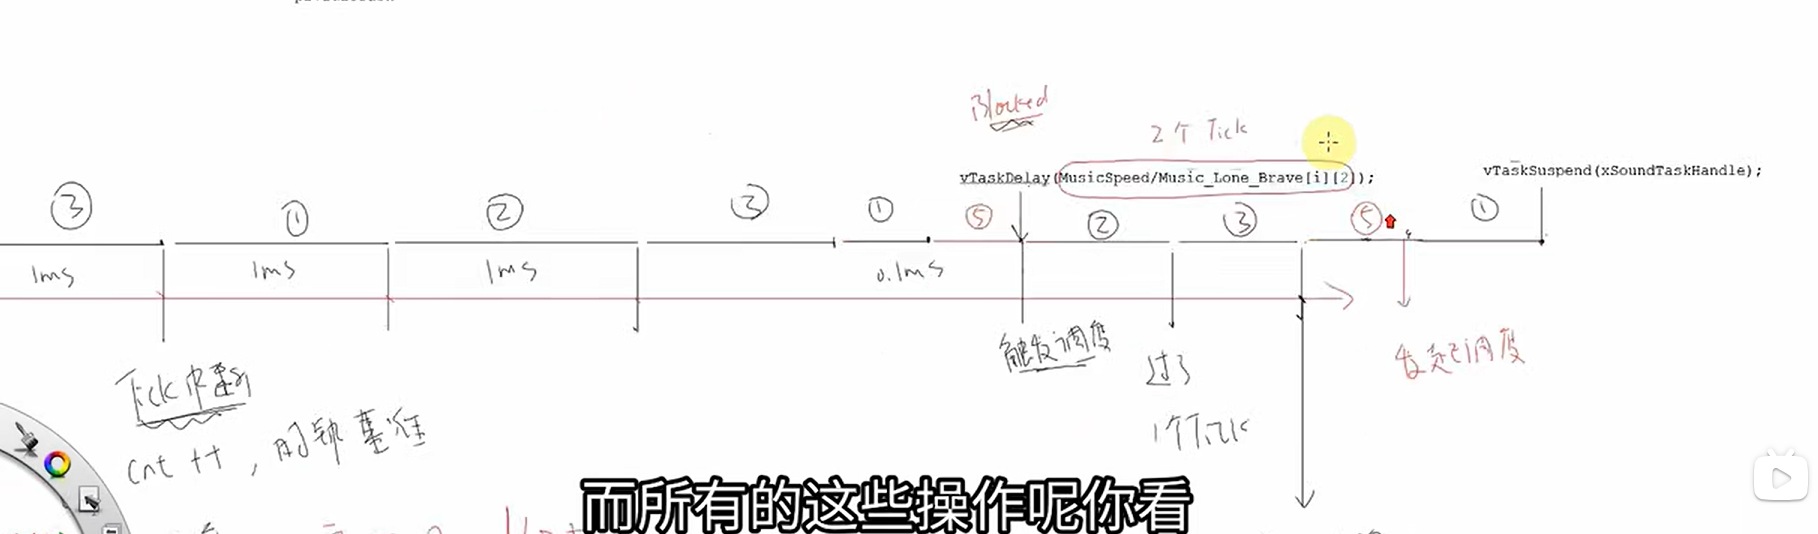 Blocked
2个 Tick
vTaskDelay(MusicSpeed/Music_Lone_Brave[i][2]);
vTaskSuspend(xSoundTaskHandle);
③ ① ② ③ ① ⑤ ② ③ ⑤ ①
1ms 1ms 1ms 0.1ms
触发调度
过了
1个Tick
发起调度
Tick中断
cnt ++ , 时钟基准
而所有的这些操作呢你看